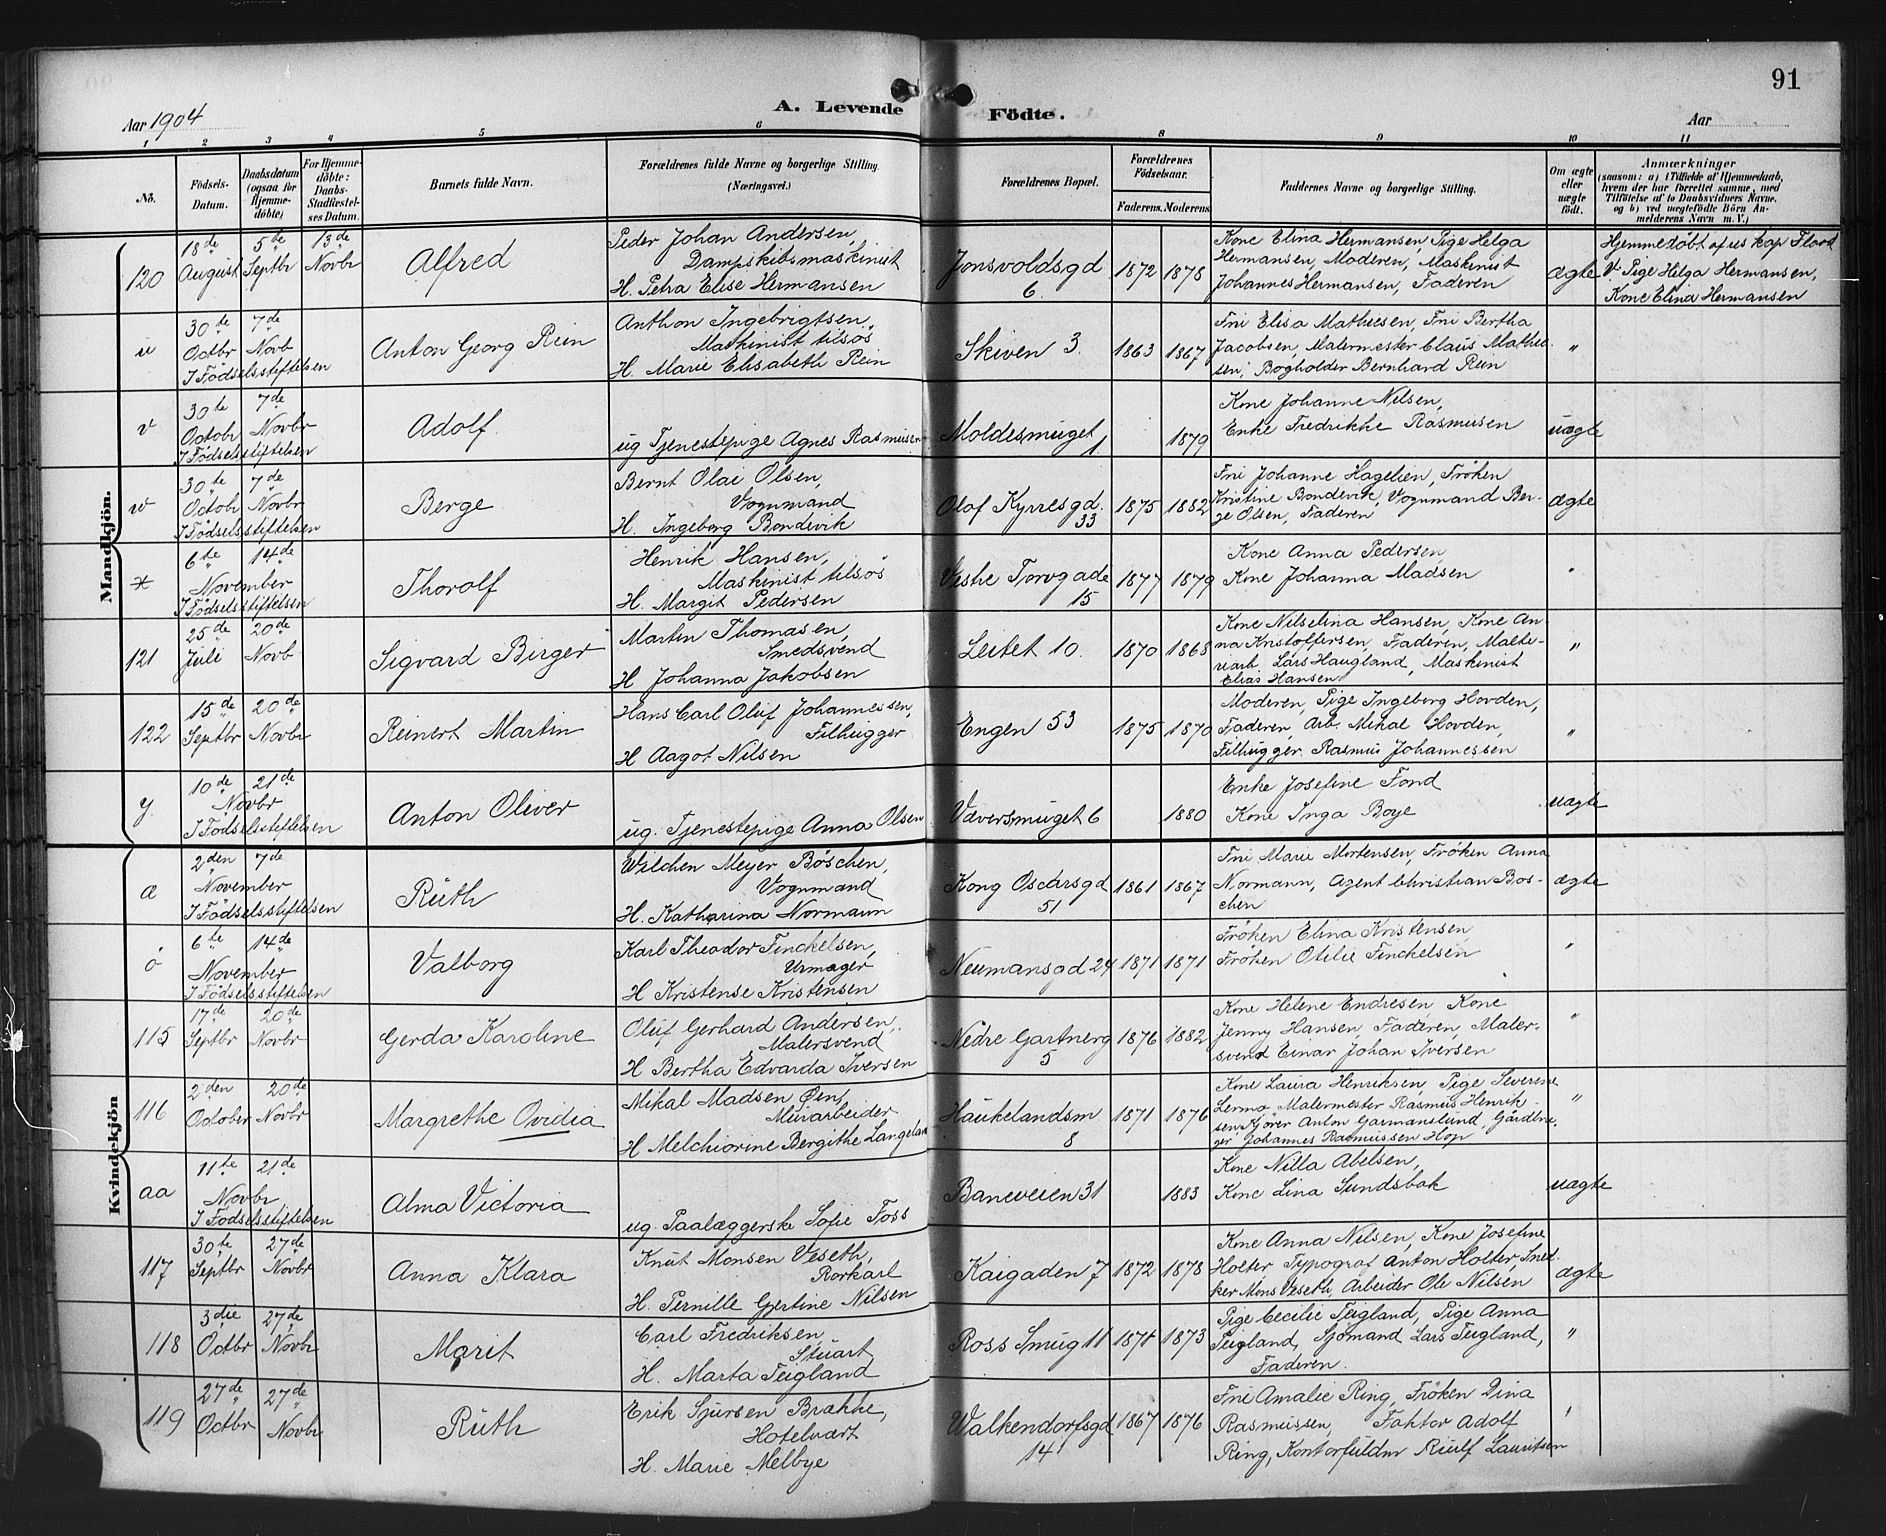 91
A. Levende Födte.
Aar 1904
Aar
1 2 3 4 5 6 8 9 10 11
No.
Födsels-Datum.
Daabsdatum (ogsaa for Hjemme-döbte)
For Hjemme-döbte: Daabs-Stadfæstel-ses Datum.
Barnets fulde Navn.
Forældrenes fulde Navne og borgerlige Stilling. (Næringsvei.)
Forældrenes Bopæl.
Forældrenes Födselsaar.
Faderens. Moderens.
Faddernes Navne og borgerlige Stilling.
Om ægte eller uægte födt.
Anmærkninger
(saasom: a) i Tilfælde af Hjemmedaab,
hvem der har forrettet samme, med
Tilföielse af to Daabsvidners Navne.
og b) ved uægtefödte Börn An-
melderens Navn m. V.)
Mandkjön.
120
18de August
5te Septbr
13de Novbr
Alfred
Peder Johan Andersen,
Dampskibsmaskinist
H. Petra Elise Hermansen
Jonsvoldsgd
6
1872 1878
Kone Elina Hermansen, Pige Helga
Hermansen, Moderen, Maskinist
Johannes Hermansen, Faderen
ægte
Hjemmedøbt af res kap Flood
V. Pige Helga Hermansen,
Kone Elina Hermansen
u
30te Octbr
7de Novb
I Födselsstiftelsen
Anton Georg Rein
Anthon Ingebrigtsen
Maskinist tilsøs
H. Marie Elisabeth Rein
Skiven 3.
1863 1867
Fru Elisa Mathiesen, Fru Bertha
Jacobsen, Malermester Claus Mathie-
sen, Bogholder Bernhard Rein
"
v
30te Octobr
7de Novbr
I Födselsstiftelsen
Adolf.
ug Tjenestepige Agnes Rasmusen
Moldesmuget 1
1879
Kone Johanne Nilsen,
Enke Fredrikke Rasmusen
uægte
w
30te Octobr
7de Novbr
I Födselsstiftelsen
Berge
Bernt Olai Olsen,
Vognmand
H. Ingeborg Bondevik
Olaf Kyrresgd.
33
1875 1882
Fru Johanne Hagelien, Frøken
Kristine Bondevik, Vognmand Ber-
ge Olsen, Faderen
ægte
x
6te 14de
November
I Födselsstiftelsen
Thorolf
Henrik Hansen,
Maskinist tilsøs
H. Margit Pedersen
Vestre Torvgade
15
1877 1879
Kone Anna Pedersen
Kone Johanna Madsen
"
121
25de Juli
20de Novb
Sigvard Birger
Martin Thomasen,
Smedsvend
H Johanna Jakobsen
Leitet 10.
1870 1868
Kone Nilselina Hansen, Kone An-
na Kristoffersen, Faderen, Malte-
riarb. Lars Haugland, Maskinist
Elias Hansen
"
122
15de Septbr
20de Novbr
Reinert Martin
Hans Carl Oluf Johannessen,
Filhugger
H Aagot Nilsen
Engen 53
1875 1870
Moderen, Pige Ingeborg Hovden,
Faderen, Arb. Mikal Hovden,
Filhugger Rasmus Johannessen
"
y
10de 21de
Novbr
I Födselsstiftelsen
Anton Oliver
ug. Tjenestepige Anna Olsen
Væversmuget 6
1880
Enke Josefine Fond
Kone Inga Boye
uægte
Kvindekjön
æ
2den 7de
November
I Födselsstiftelsen
Ruth
Wilchen Meyer Böschen,
Vognmand
H. Katharina Normann
Kong Oscarsgd
51
1861 1867
Fru Marie Mortensen, Frøken Anna
Normann, Agent Christian Bos-
chen
ægte
ö
6te 14de
November
I Födselsstiftelsen
Valborg
Karl Theodor Finckelsen,
Urmager
H Kristense Kristensen
Neumansgd 24
1871 1871
Frøken Elina Kristensen
Frøken Otilie Finckelsen
"
115
17de Septbr
20de Novbr
Gerda Karoline
Oluf Gerhard Andersen,
Malersvend
H Bertha Edvarda Iversen
Nedre Gartnerg
5
1876 1882
Kone Helene Endresen, Kone
Jenny Hansen, Faderen, Maler-
svend Einar Johan Iversen
"
116
2den October
20de Novbr
Margrethe Ovidia
Mikal Madsen Øen,
Murarbeider
H Melchiorine Bergithe Langeland
Haukelandsm
8
1871 1876
Kone Laura Henriksen, Pige Severine
Lermo, Malermester Rasmus Henrik-
sen, Kjører Anton Garmanslund, Gårdbru-
ger Johannes Rasmussen Hop
"
aa
11te 21de
Novbr
I Födselsstiftelsen
Alma Victoria
ug. Paalæggerske Sofie Foss
Baneveien 31
1883
Kone Nilla Abelsen,
Kone Lina Sundsbak
uægte
117
30te Septbr
27de Novbr
Anna Klara
Knut Monsen Veseth,
Rorkarl
H. Pernille Gjertine Nilsen
Kaigaden 7
1872 1878
Kone Anna Nilsen, Kone Josefine
Holter Typograf Anton Holter, Sned-
ker Mons Veseth, Arbeider Ole Nilsen
ægte
118
3die Octbr
27de Novbr
Marit
Carl Fredriksen
Stuart
H. Marta Teigland
Ross Smug 11
1871 1873
Pige Cecilie Teigland, Pige Anna
Teigland, Sjömand Lars Teigland,
Faderen.
"
119
27de Octbr
27de Novbr
Ruth
Erik Sjursen Brække,
Hotelvært
H. Marie Melbye
Walkendorfsgd
14
1867 1876
Fru Amalie Ring, Frøken Dina
Rasmussen, Faktor Adolf
Ring, Kontorfuldm Riulf Lauritsen
"